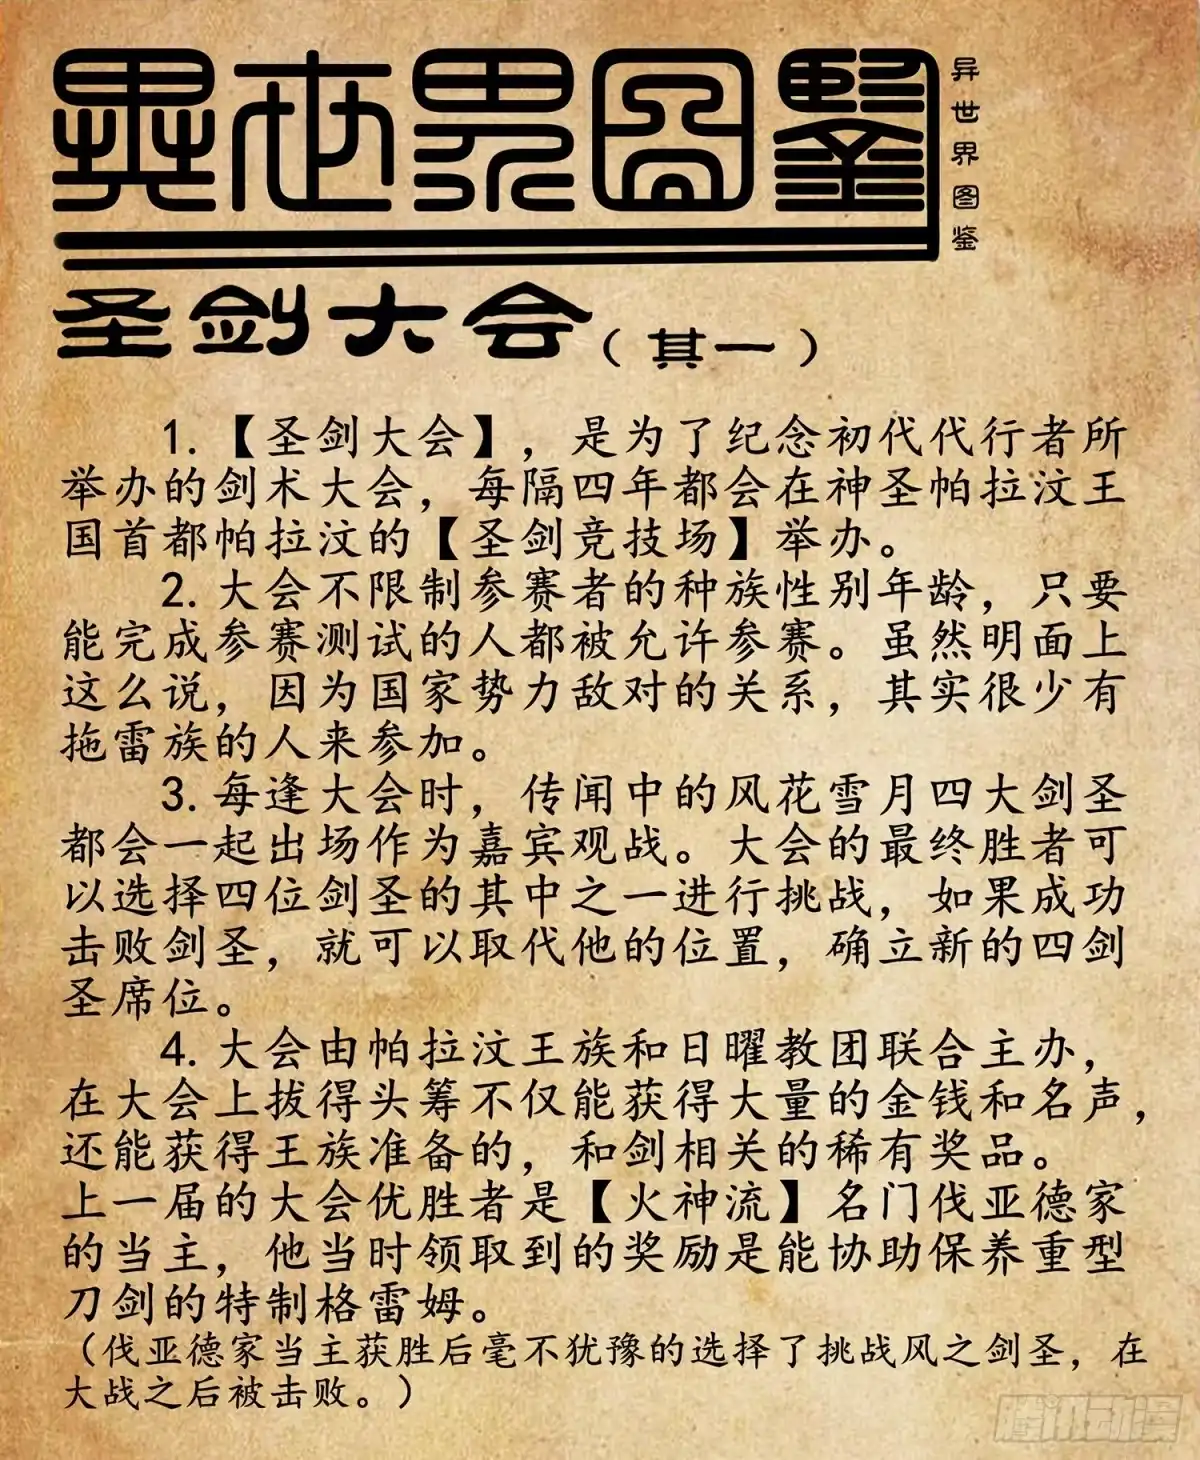 異世界圖鑒
异世界图鉴
圣剑大会（其一）
1.【圣剑大会】，是为了纪念初代代行者所
举办的剑术大会，每隔四年都会在神圣帕拉汶王
国首都帕拉汶的【圣剑竞技场】举办。
2.大会不限制参赛者的种族性别年龄，只要
能完成参赛测试的人都被允许参赛。虽然明面上
这么说，因为国家势力敌对的关系，其实很少有
拖雷族的人来参加。
3.每逢大会时，传闻中的风花雪月四大剑圣
都会一起出场作为嘉宾观战。大会的最终胜者可
以选择四位剑圣的其中之一进行挑战，如果成功
击败剑圣，就可以取代他的位置，确立新的四剑
圣席位。
4.大会由帕拉汶王族和日曜教团联合主办，
在大会上拔得头筹不仅能获得大量的金钱和名声，
还能获得王族准备的，和剑相关的稀有奖品。
上一届的大会优胜者是【火神流】名门伐亚德家
的当主，他当时领取到的奖励是能协助保养重型
刀剑的特制格雷姆。
（伐亚德家当主获胜后毫不犹豫的选择了挑战风之剑圣，在
大战之后被击败。）
腾讯动漫